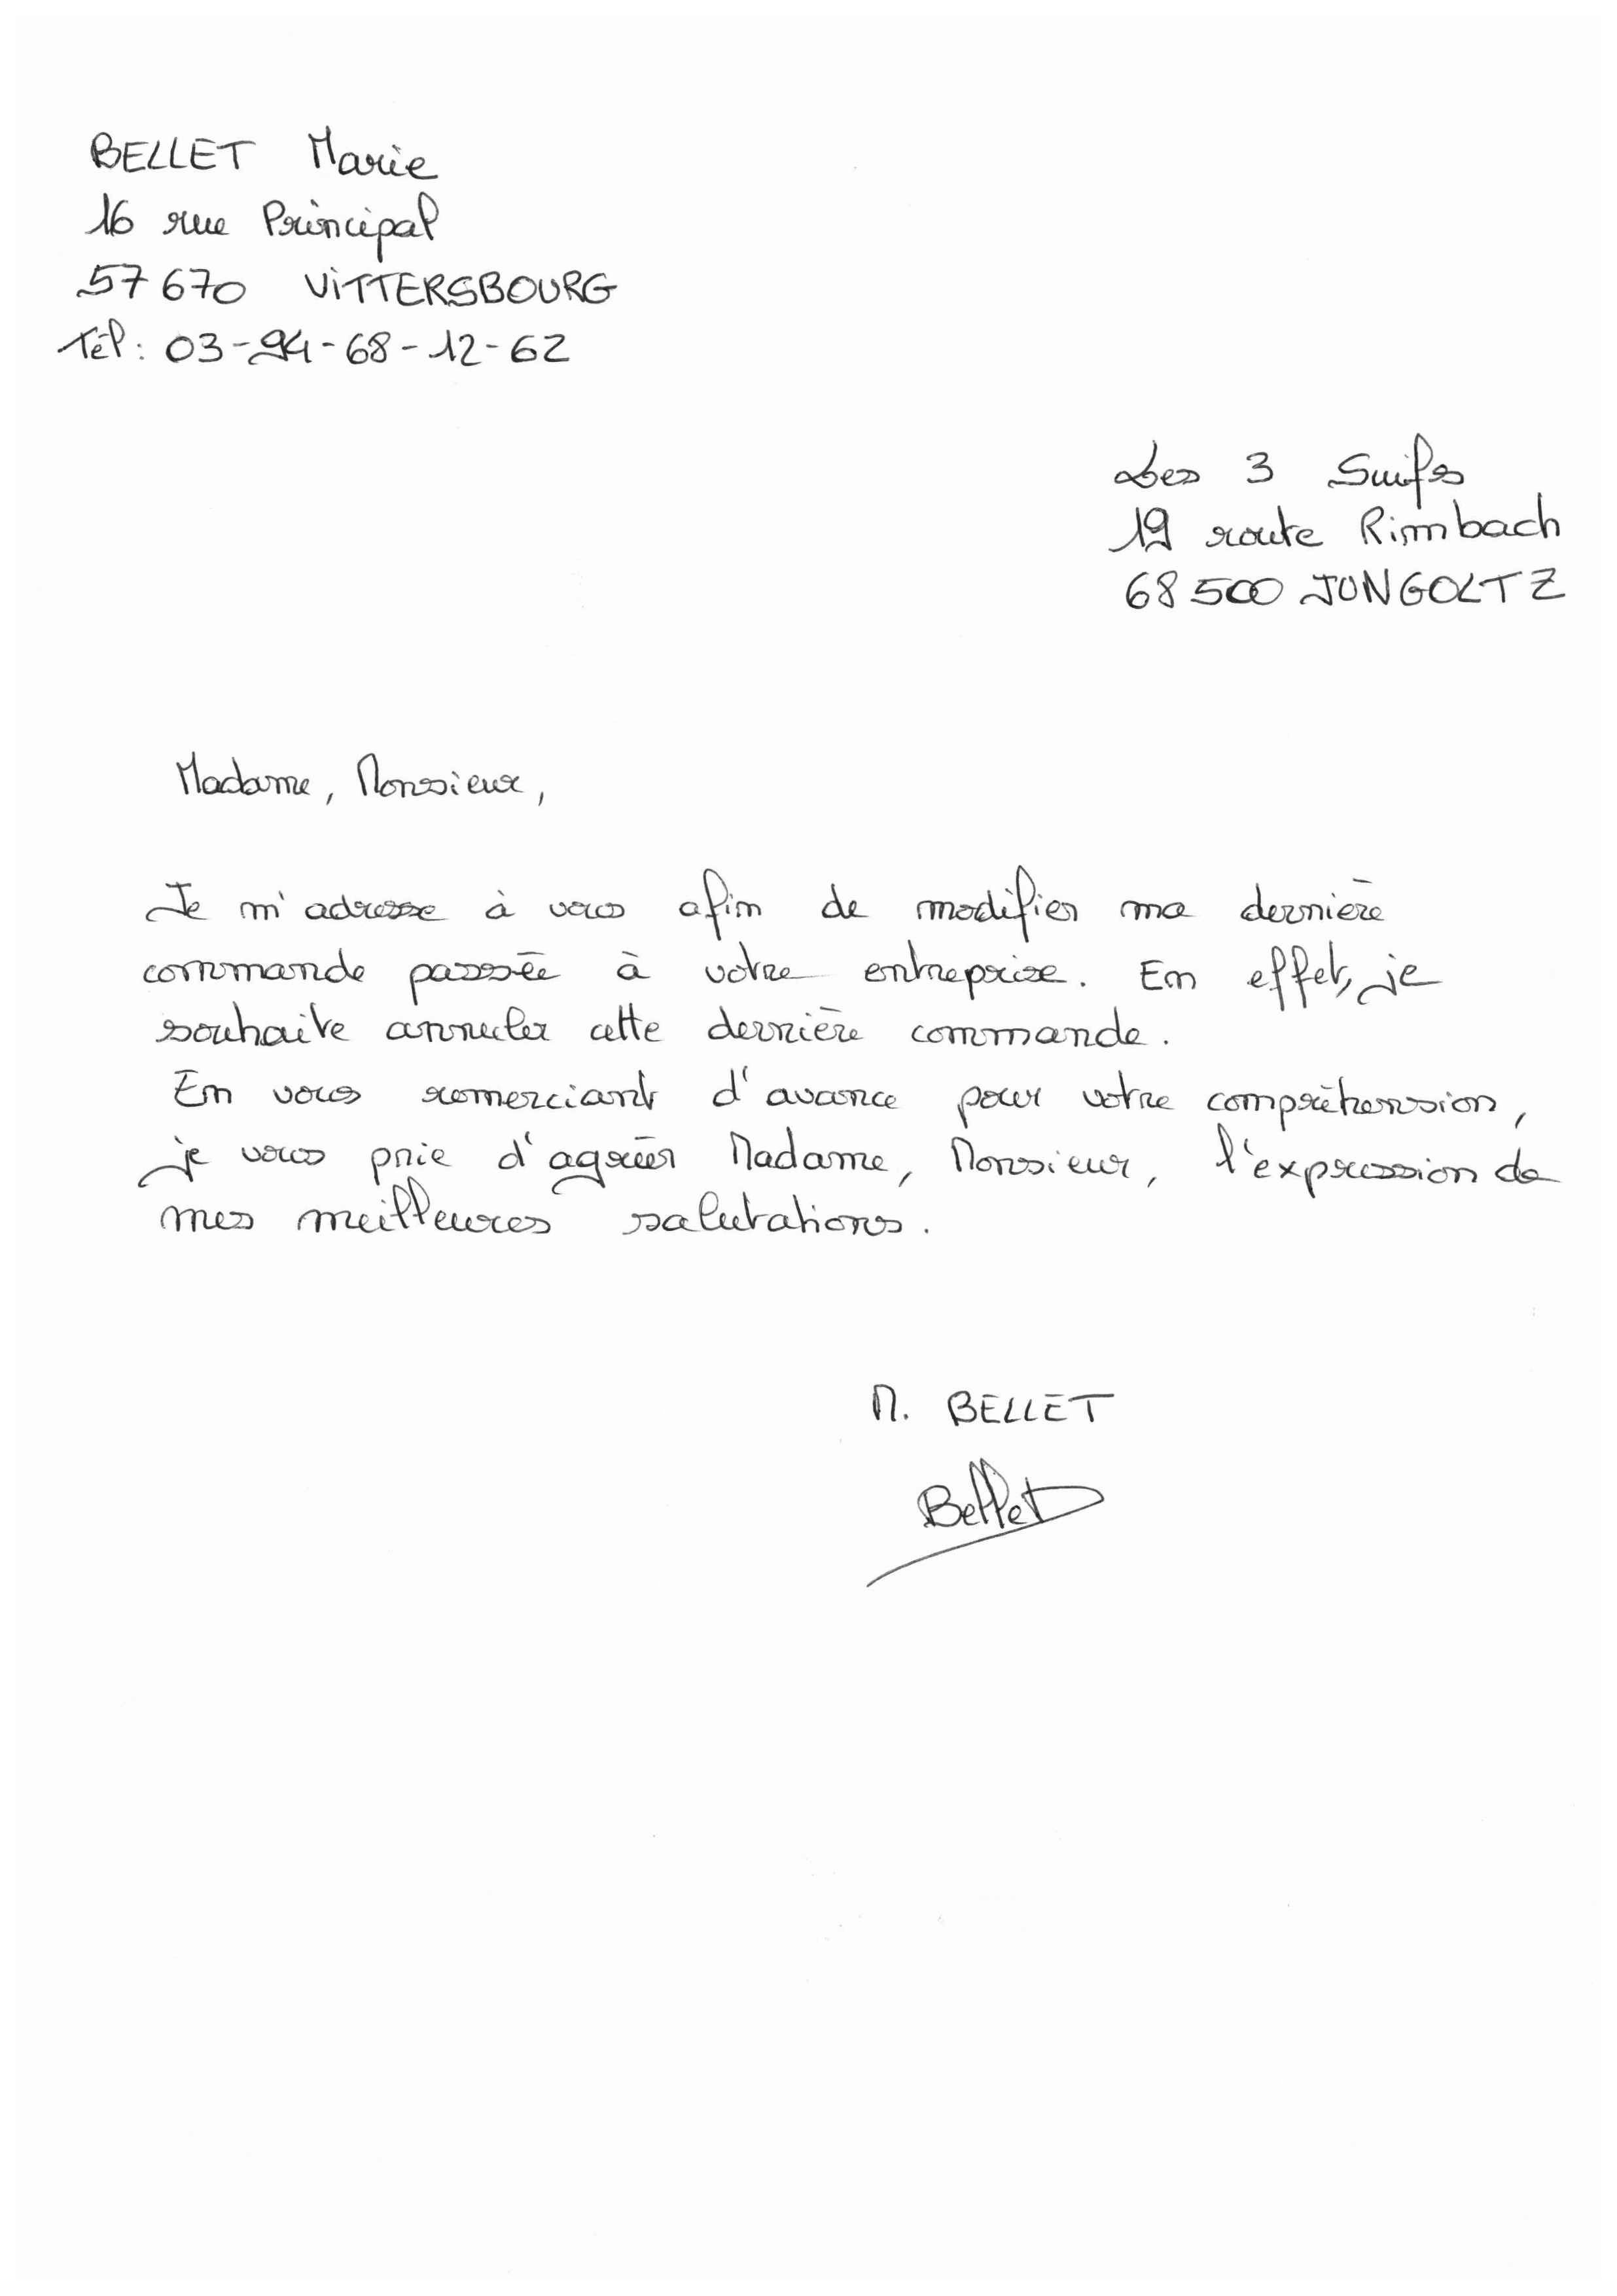 BELLET Marie
16 rue Principal
57670 ViTTERSBOURG
Tél : 03-94-68-12-62
Les 3 Suifs
19 route Rimbach
68500 JUNGOLTZ
Madame, Monsieur,
Je m'adresse à vous afin de modifier ma dernière
commande passée à votre entreprise. En effet, je
souhaite annuler cette dernière commande.
En vous remerciant d'avance pour votre compréhenssion,
je vous prie d'agréer Madame, Monsieur, l'expression de
mes meilleures salutations.
M. BELLET
Bellet